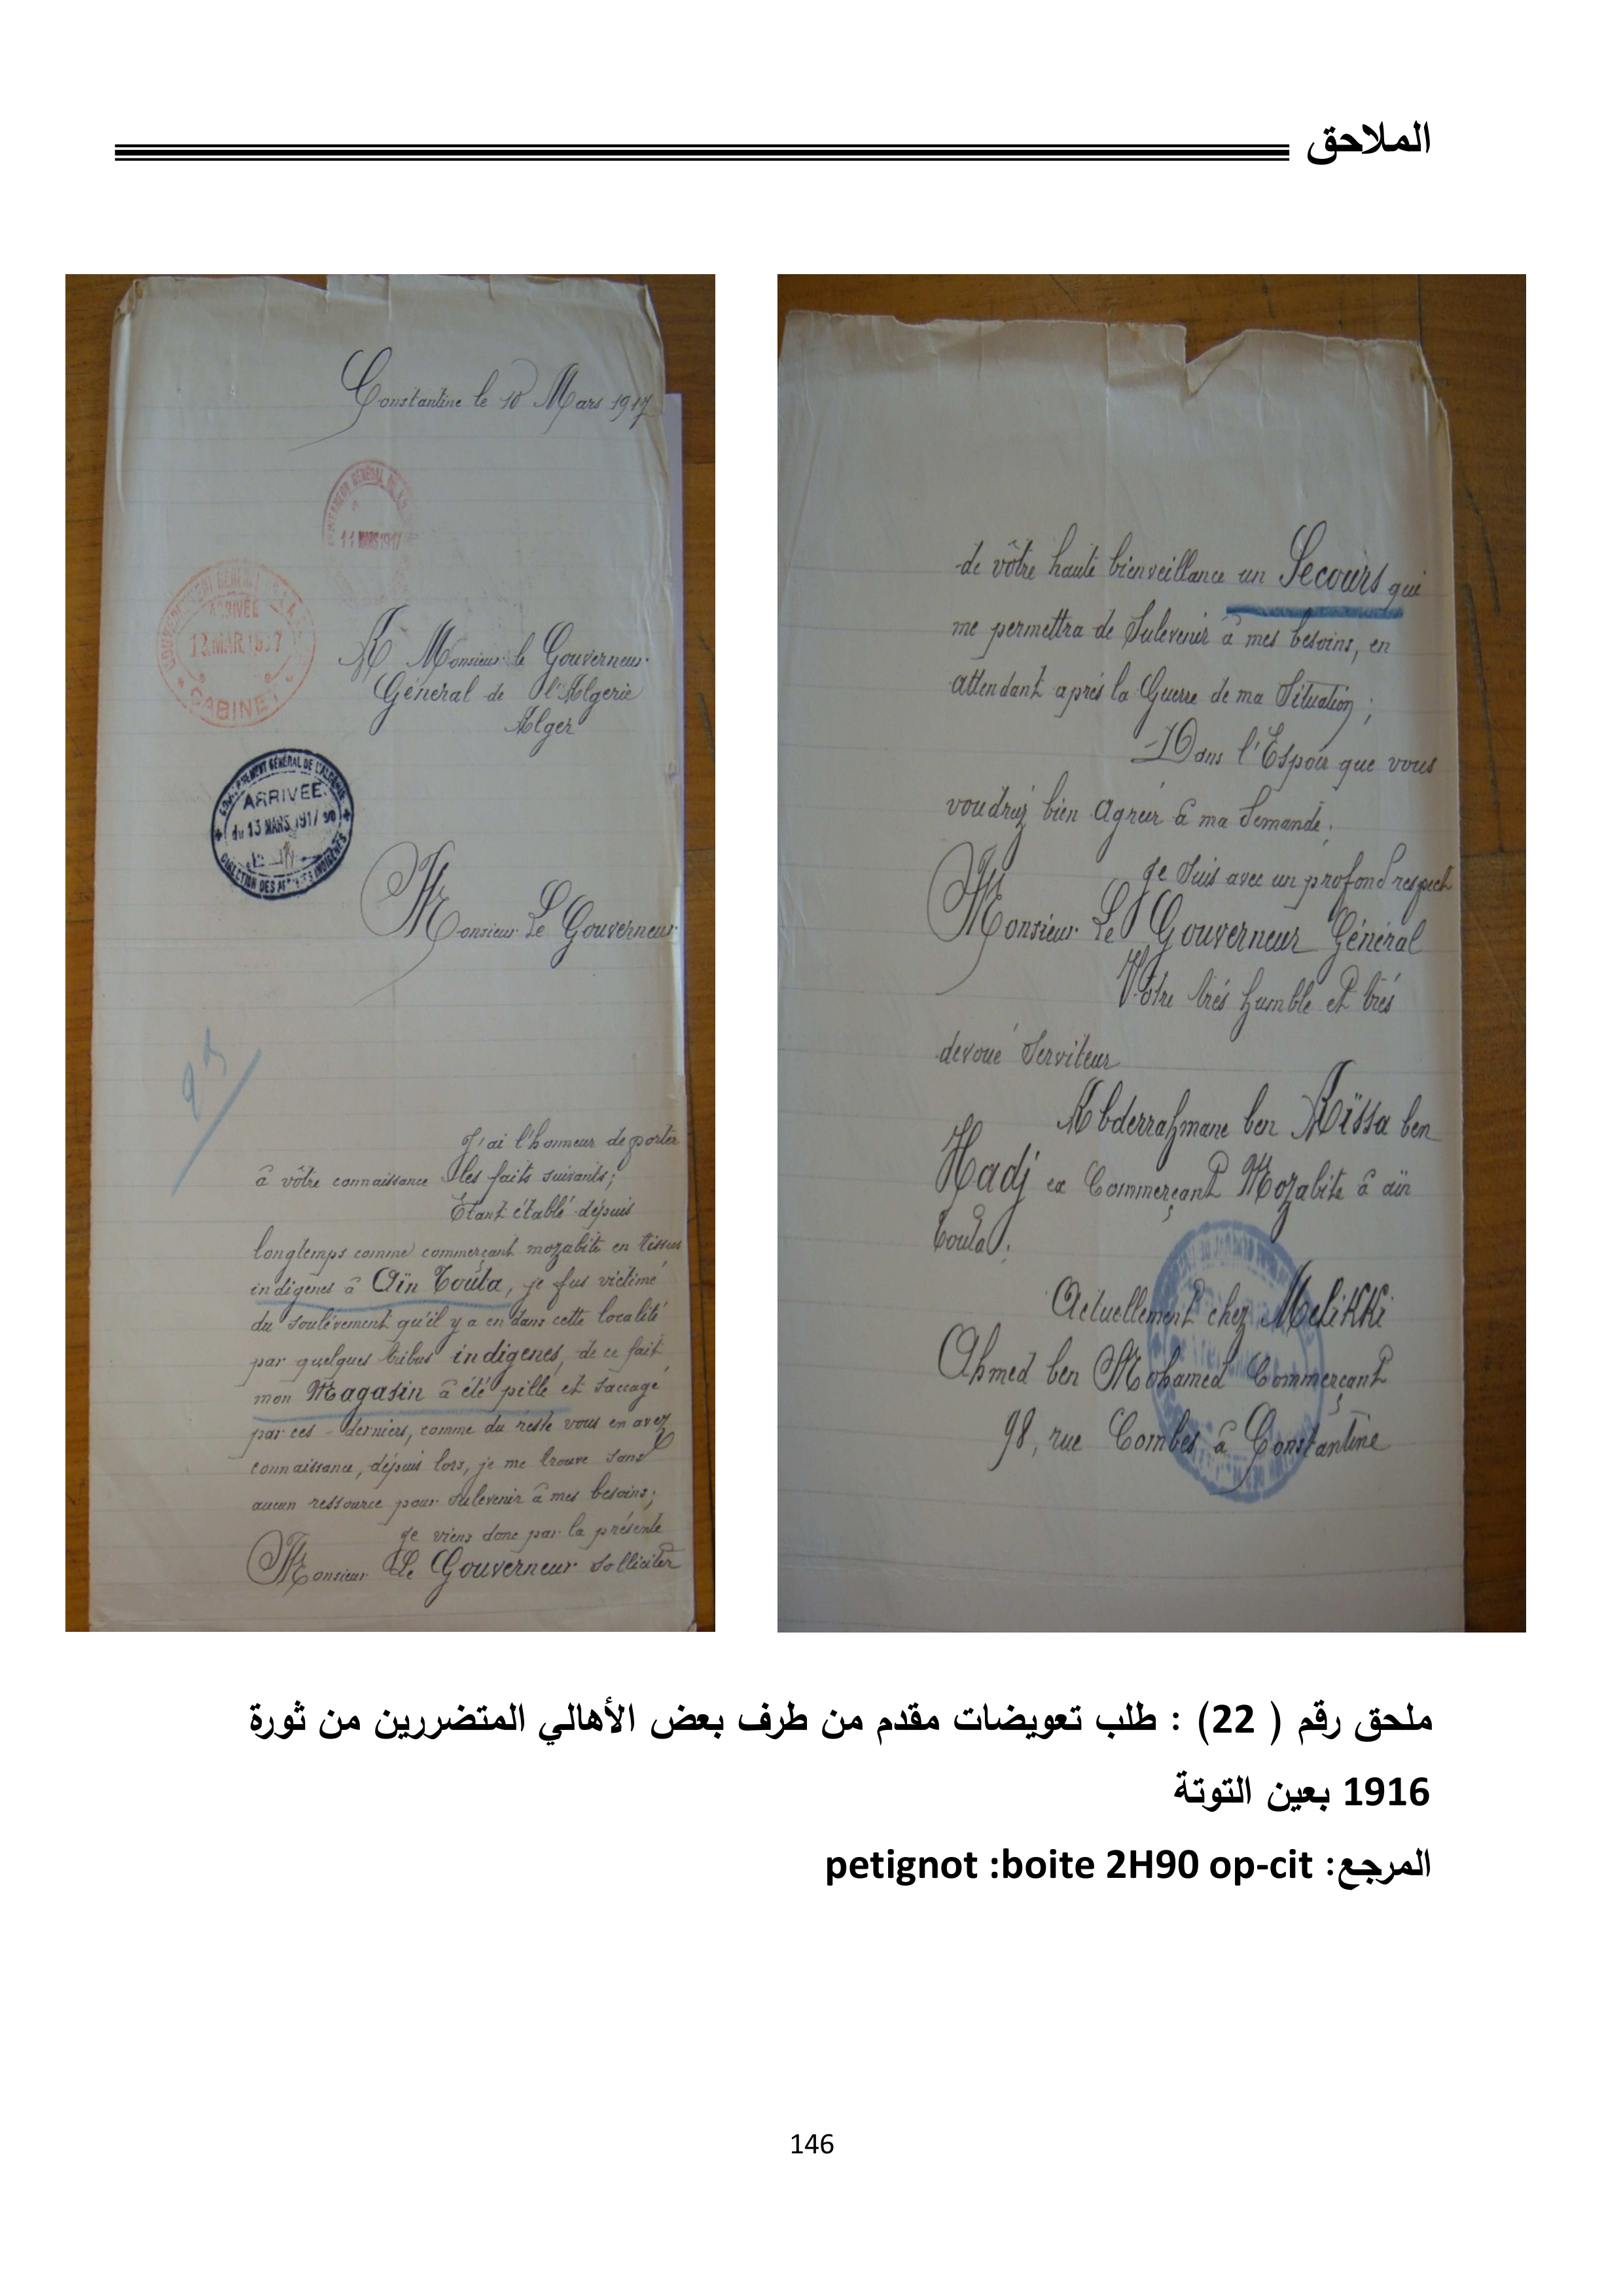 الملاحق
Constantine le 10 Mars 1917
11 MARS 1917
ARRIVÉE
CABINET
A Monsieur le Gouverneur
Général de l'Algerie
Alger
GOUVERNEMENT GÉNÉRAL DE L'ALGÉRIE
ARRIVÉE
du 13 MARS 1917
DIRECTION DES AFFAIRES INDIGÈNES
Monsieur Le Gouverneur
J'ai l'honneur de porter
â vôtre connaissance les faits suivants;
Etant établé dépuis
longtemps comme commerçant mozabite en tissus
indigènes â Aïn Touta, je fus victime
du soulévement qu'il y a en dans cette localité
par quelques tribus indigenes, de ce fait
mon Magasin â été pillé et saccagé
par ces - derniers, comme du reste vous en avez
connaissance, dépuis lors, je me trouve sans
aucun ressource pour sulevenir â mes besoins;
Je viens donc par la présente
Monsieur Le Gouverneur solliciter
de vôtre haute bienveillance un Secours qui
me permettra de Sulevenir â mes besoins, en
attendant aprés la Guerre de ma Situation;
Dans l'Espoir que vous
voudrez bien Agréer â ma Demande.
Je Suis avec un profond respect
Monsieur Le Gouverneur Général
Vôtre trés humble et trés
devoué Serviteur
Abderrahmane ben Aïssa ben
Hadj ex Commerçant Mozabite â aïn
Touta.
Actuellement chez Melikki
Ahmed ben Mohamed Commerçant
98, rue Combes â Constantine
ملحق رقم ( 22) : طلب تعويضات مقدم من طرف بعض الأهالي المتضررين من ثورة
1916 بعين التوتة
المرجع: petignot :boite 2H90 op-cit
146